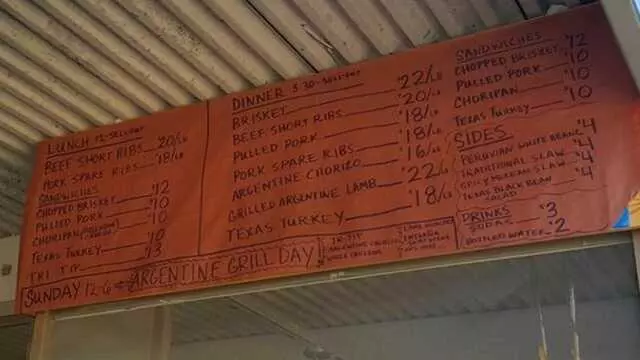 LUNCH 12-SELL-OUT
BEEF SHORT RIBS 20/LB
PORK SPARE RIBS 18/LB
SANDWICHES
CHOPPED BRISKET 12
PULLED PORK 10
CHORIPAN 10
TEXAS TURKEY 10
TRI TIP 13
DINNER 5:30-SELL-OUT
BRISKET 22/LB
BEEF SHORT RIBS 20/LB
PULLED PORK 18/LB
PORK SPARE RIBS 18/LB
ARGENTINE CHORIZO 16/LB
GRILLED ARGENTINE LAMB 22/LB
TEXAS TURKEY 18/LB
SANDWICHES
CHOPPED BRISKET 12
PULLED PORK 10
CHORIPAN 10
TEXAS TURKEY 10
SIDES
PERUVIAN WHITE BEANS 4
TRADITIONAL SLAW 4
SPICY MEXICAN SLAW 4
TEXAS BLACK BEAN SALAD 4
DRINKS
SODAS 3
BOTTLED WATER 2
SUNDAY 12-6 ARGENTINE GRILL DAY
TRI-TIP
ARGENTINE CHORIZO
WHOLE CHICKEN